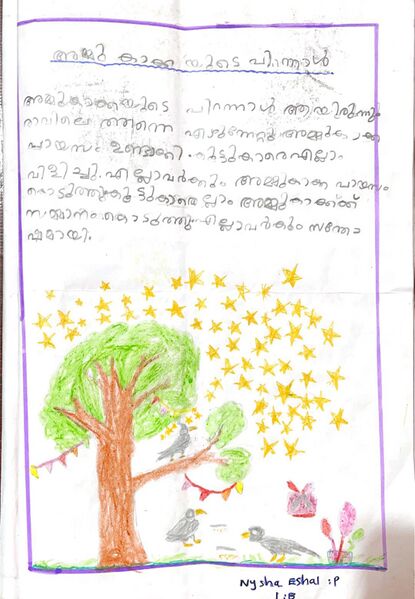 അമ്മു കാക്കയുടെ പിറന്നാൾ
അമ്മുകാക്കയുടെ പിറന്നാൾ ആയിരുന്നു
രാവിലെ തന്നെ എഴുന്നേറ്റു അമ്മുകാക്ക
പായസം ഉണ്ടാക്കി. കൂട്ടുകാരെഎല്ലാം
വിളിച്ചു. എല്ലാവർക്കും അമ്മുകാക്ക പായസം
കൊടുത്തു കൂട്ടുകാരെല്ലാം അമ്മുകാക്കക്ക്
സമ്മാനം കൊടുത്തു എല്ലാവർകും സന്തോ
ഷമായി.
Nysha Eshal :P
1:B